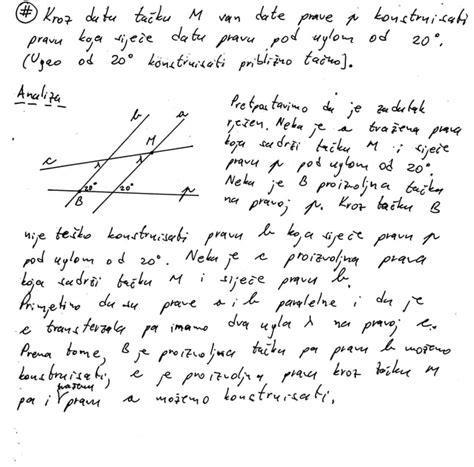 # Kroz datu tačku M van date prave p konstruisati
pravu koja siječe datu pravu pod uglom od 20°.
(Ugao od 20° konstruisati približno tačno).
Analiza
b a
M
c λ λ
20° 20° p
B
Pretpostavimo da je zadatak
rješen. Neka je a tražena prava
koja sadrži tačku M i siječe
pravu p pod uglom od 20°.
Neka je B proizvoljna tačka
na pravoj p. Kroz tačku B
nije teško konstruisati pravu b koja siječe pravu p
pod uglom od 20°. Neka je c proizvoljna prava
koja sadrži tačku M i siječe pravu b.
Primjetimo da su prave a i b paralelne i da je
c transferzala pa imamo dva ugla λ na pravoj c.
Prema tome, B je proizvoljna tačka pa pravu b možemo
konstruisati, c je proizvoljna prava kroz tačku M
pa i pravu a možemo konstruisati.